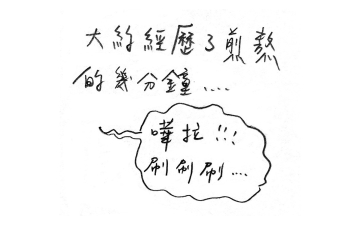 大約經歷了煎熬
的幾分鐘....
嘩拉!!!
刷刷刷....